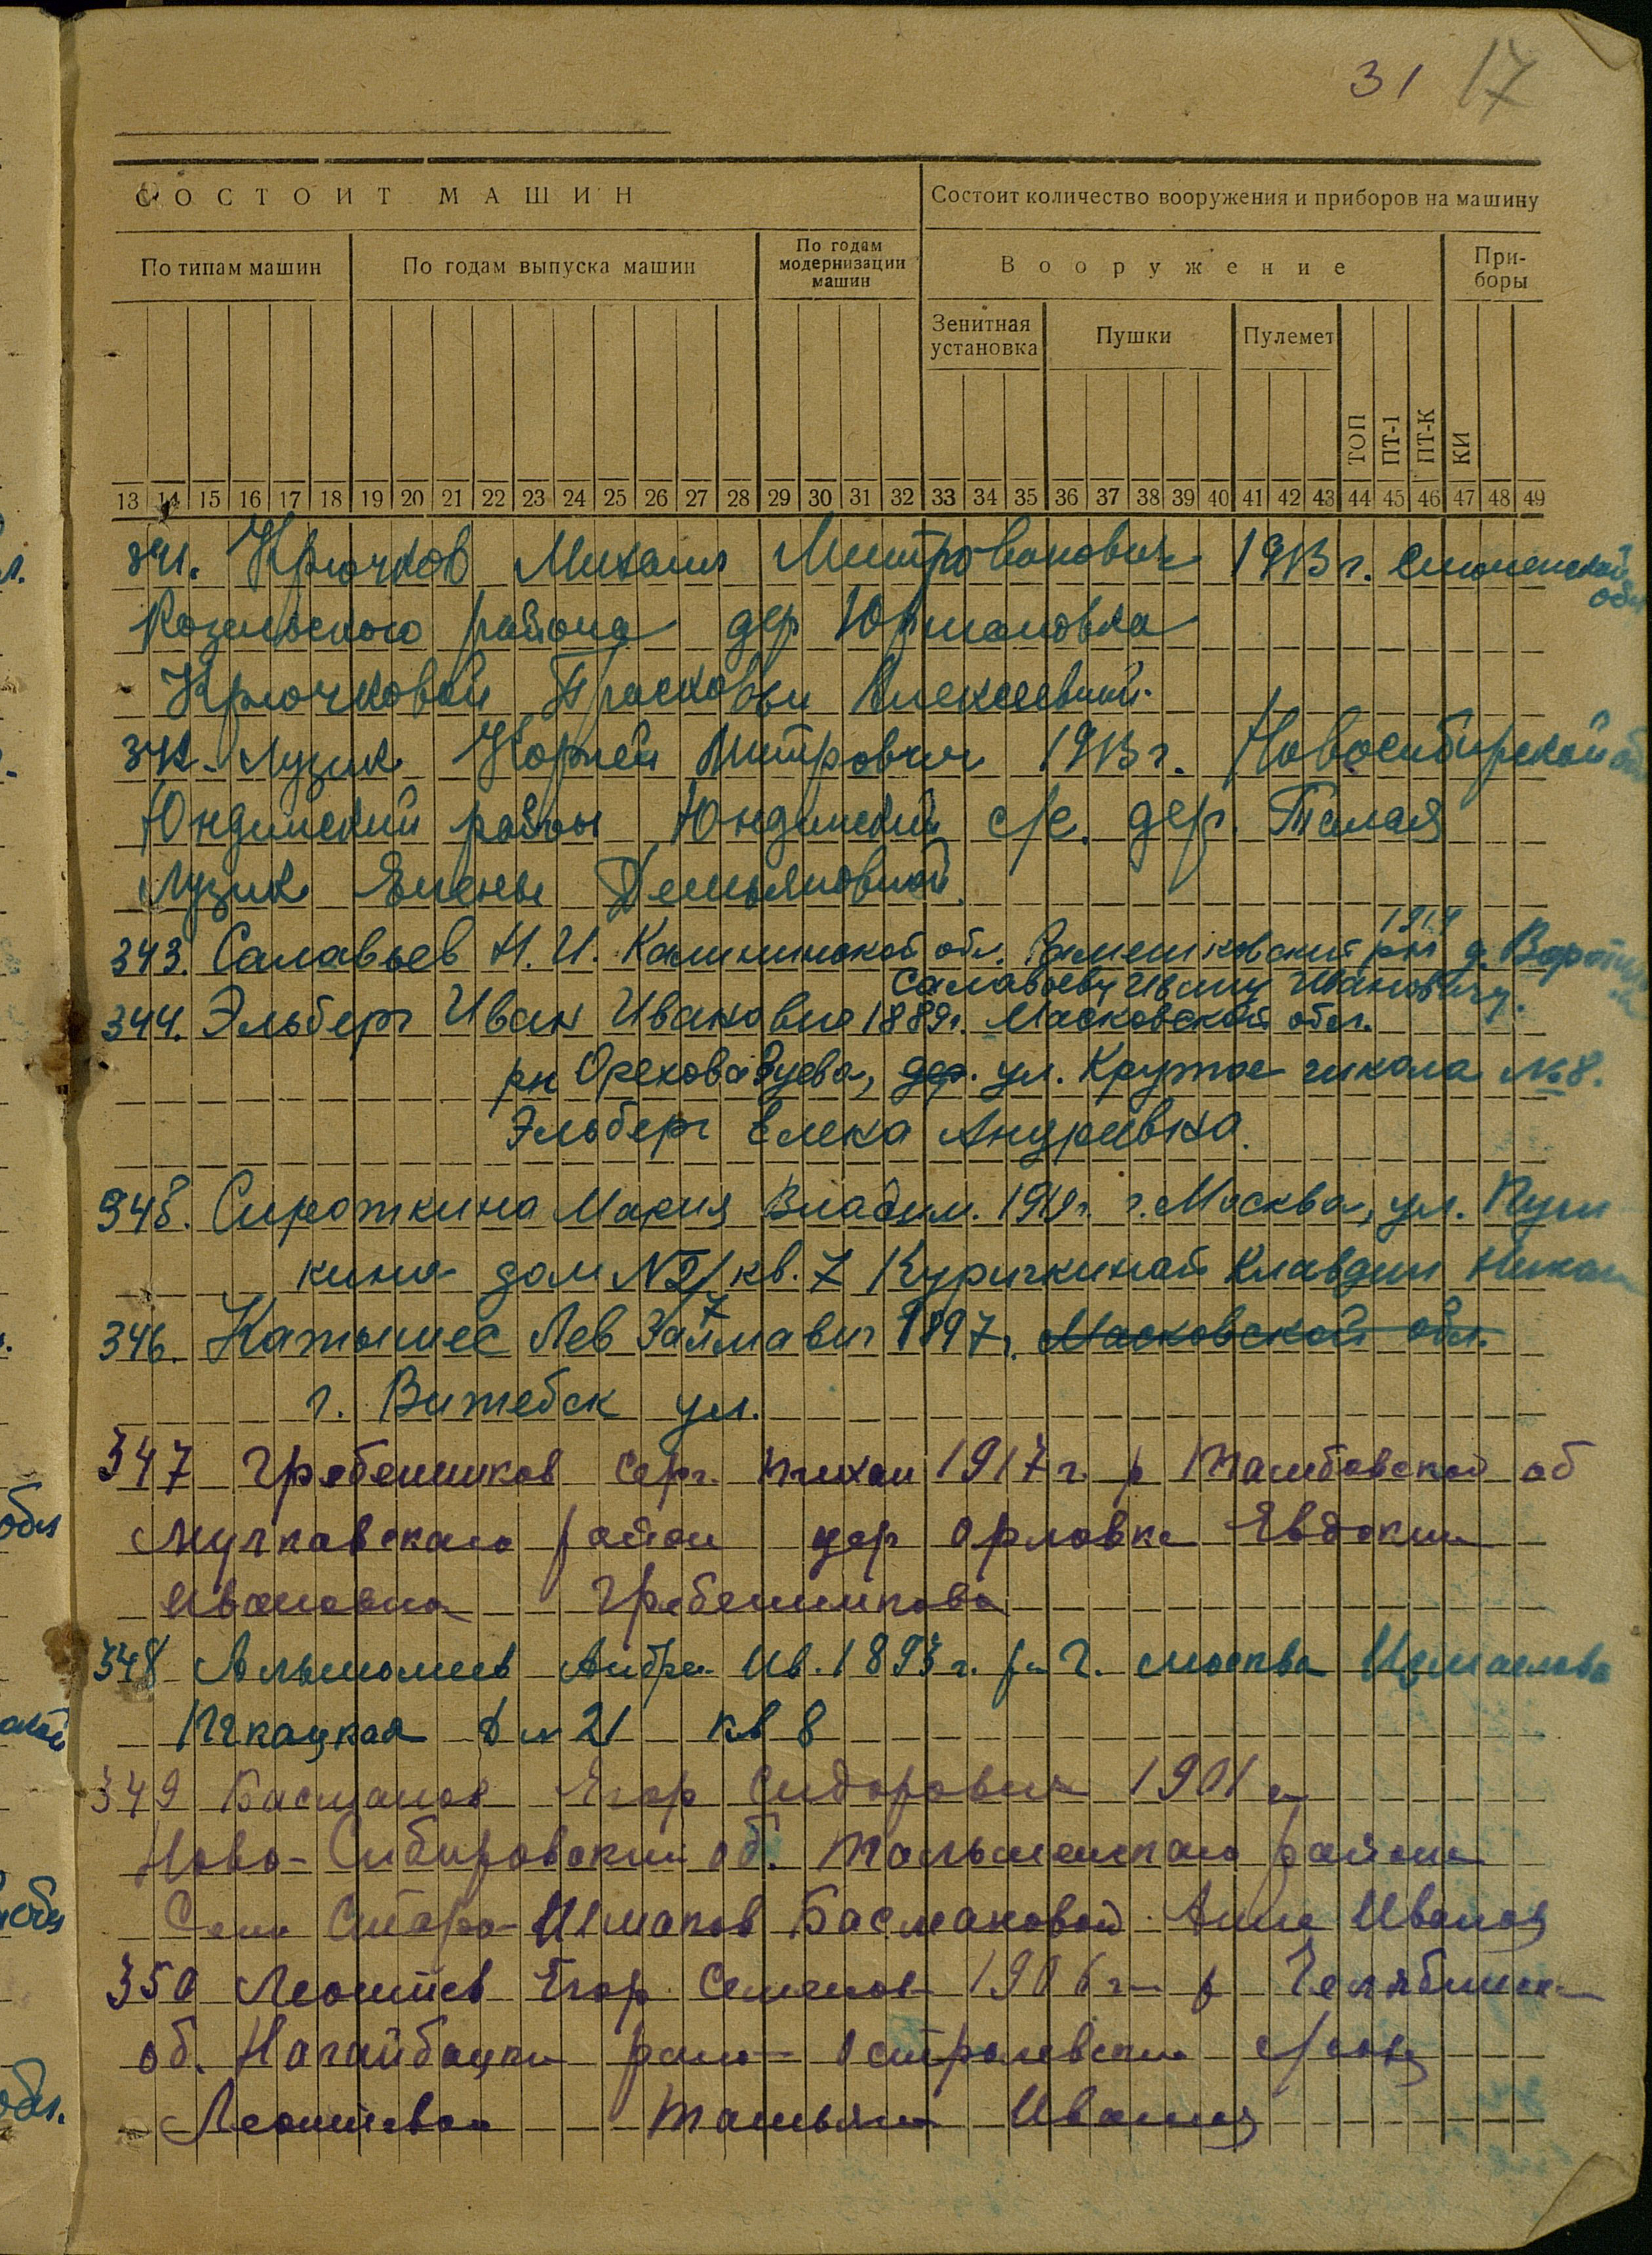 31 17
СОСТОИТ МАШИН
Состоит количество вооружения и приборов на машину
По типам машин
По годам выпуска машин
По годам модернизации машин
Вооружение
При-
боры
Зенитная установка
Пушки
Пулемет
ТОП
ПТ-1
ПТ-К
КИ
13 14 15 16 17 18 19 20 21 22 23 24 25 26 27 28 29 30 31 32 33 34 35 36 37 38 39 40 41 42 43 44 45 46 47 48 49
341. Крючков Михаил Митрованович 1913 г. Смоленской обл
Козельского района дер Юрмановка
Крючковой Прасковьи Алексеевной.
342. Лузик Корней Митрович 1913 г. Новосибирской
Юндинский район Юндинский с/с. дер. Талая
Лузик Елены Демьяновной.
1914
343. Салавьев Н. И. Калининской обл. рн д.
Салавьеву Ивану Ивановичу.
344. Эльберг Иван Иванович 1889г. Масковской обл.
рн Орехова Зуева, дер. ул. Крутое школа №8.
Эльберг Елена Андреевна.
345. Сироткина Мария Владим. 1919г. г. Масква, ул. Пуш
кина дом №2/7 кв. 7 Куричкинай Клавдии
346. Катышес Лев 1897г. Масковской обл.
г. Витебск ул.
347 Гребенников Серг. Михаи 1917 г. р Тамбовской об
Мучкавского район дер Орловка Евдокии
Ивановна Гребенникова
348 Ив. 1893 г. р г. Москва Измаилово
Ткацкая д № 21 кв 8
349 Басманов Егор Сидорович 1901 г
Ново-Сибировский об. Тальменскаго района
Село Старо- Басмановой Анне Иванов
350 Леонтев Егор Семенов 1906 г р Челябинск
об. Нагайбацки с/сов
Леонтева Татьян Иванов